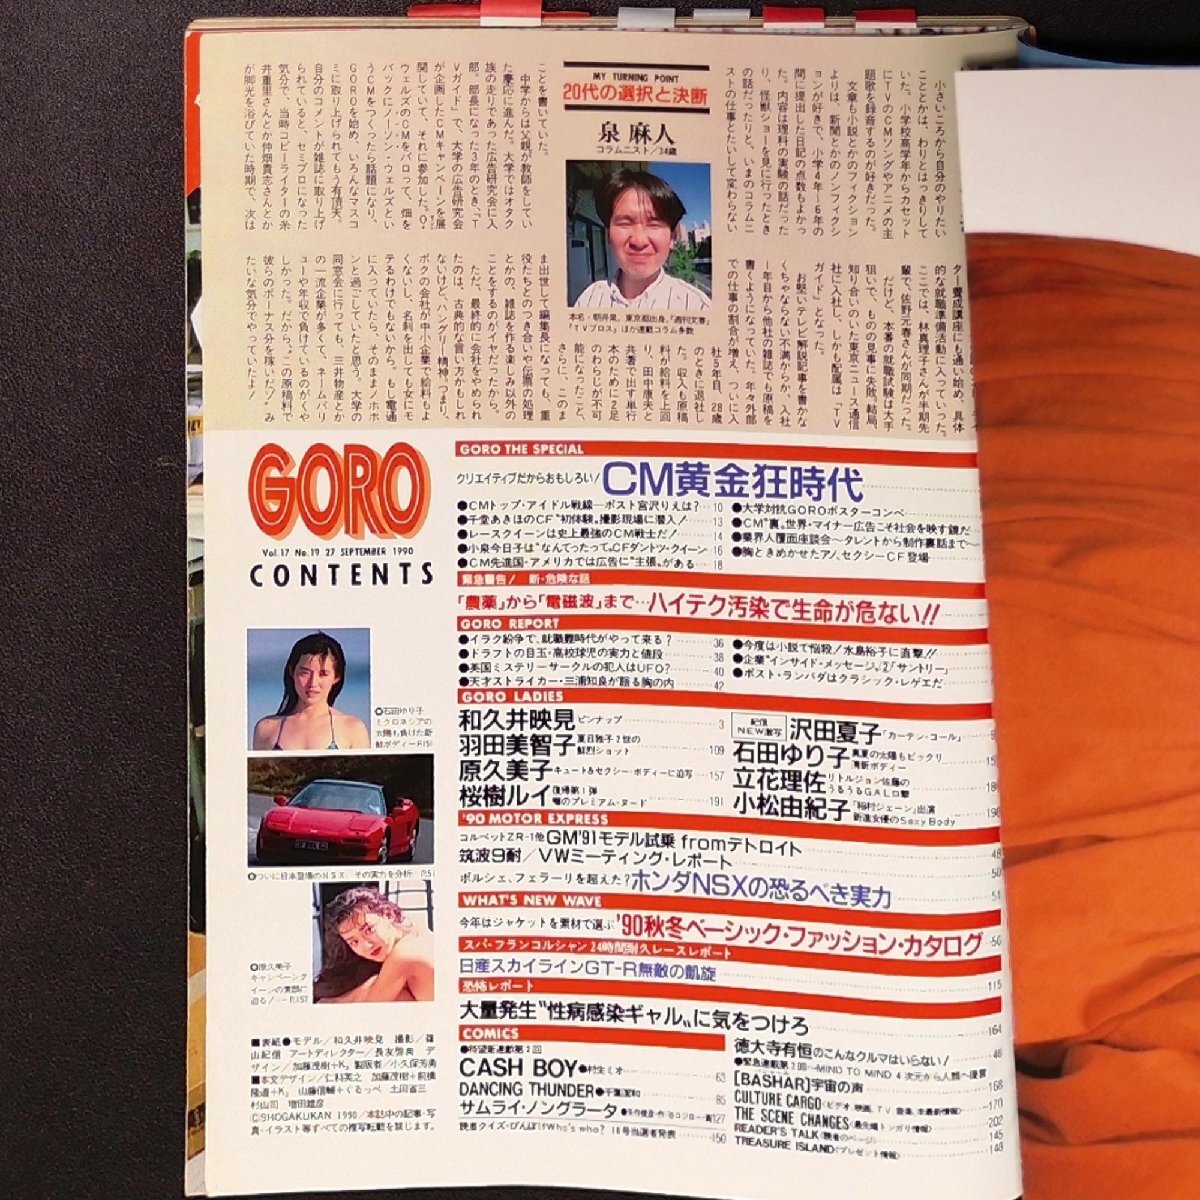 MY TURNING POINT
20代の選択と決断
泉 麻人
コラムニスト/34歳
小さいころから自分のやりたい
こととかは、わりとはっきりして
いた。小学校高学年からカセット
にTVのCMソングやアニメの主
題歌を録音するのが好きだった。
文章も小説とかのフィクション
よりは、新聞とかのノンフィクシ
ョンが好きで、小学4年~6年の
間に提出した日記の点数もよかっ
た。内容は理科の実験の話だった
り、怪獣ショーを見に行ったとき
の話だったりと、いまのコラムニ
ストの仕事とたいして変わらない
ことを書いていた。
中学からは父親が教師をしてい
た慶応に進んだ。大学ではオタク
族の走りであった広告研究会に入
部。部長になった3年のとき、『T
Vガイド』で、大学の広告研究会
が企画したCMキャンペーンを展
開していて、それに参加した。O・
ウェルズのCMをパロって、畑を
バックにノーソン・ウェルズとい
うCMをつくったら話題になり、
GOROを始め、いろんなマスコ
ミに取り上げられてもう有頂天。
自分のコメントが雑誌に取り上げ
られていると、セミプロになった
気分で、当時コピーライターの糸
井重里さんとか仲畑貴志さんとか
が脚光を浴びていた時期で、次は
ター養成講座にも通い始め、具体
的な就職準備活動に入っていった。
ここでは、林真理子さんが半期先
輩で、佐野元春さんが同期だった。
だけど、本番の就職試験は大手
狙いで、ものの見事に失敗。結局、
知り合いのいた東京ニュース通信
社に入社し、しかも配属は『TV
ガイド』となった。
お堅いテレビ解説記事を書かな
くちゃならない不満からか、入社
1年目から他社の雑誌でも原稿を
書くようになっていた。年々外部
での仕事の割合が増え、ついに入
社5年目、28歳
のときに退社し
た。収入も原稿
料が給料を上回
り、田中康夫と
共著で出す単行
本のために2足
のわらじが不可
能になったこと、
さらに、このま
ま出世して編集長になっても、重
役たちとのつき合いや伝票の処理
とかの、雑誌を作る楽しみ以外の
ことをするのがイヤだったから。
ただ、最終的に会社をやめられ
たのは、古典的な言い方かもしれ
ないけど、ハングリー精神。つまり、
ボクの会社が中小企業で給料もよ
くないし、名刺を出しても女にモ
テるわけでもないから。もし電通
に入っていたら、そのままノホホ
ンと過ごしていたと思う。大学の
同窓会に行っても、三井物産とか
の一流企業が多くて、ネームバリ
ューや年収で負けているのがくや
しかった。だから、“この原稿料で
彼らのボーナス分を稼いだゾ”み
たいな気分でやっていたよ!
本名・朝井泉。東京都出身。『週刊文春』
『TVブロス』ほか連載コラム多数
GORO
Vol.17 No.19 27 SEPTEMBER 1990
CONTENTS
●石田ゆり子
ミクロネシアの
太陽も負けた新
鮮ボディーP.151
●ついに日本登場のNSX、その実力を分析 P.51
●原久美子
キャンペーンク
イーンの素顔に
迫る!…P.157
■表紙●モデル/和久井映見 撮影/篠
山紀信 アートディレクター/長友啓典 デ
ザイン/加藤茂樹+K₂ 製版者/小久保芳美
■本文デザイン/仁科英之 加藤茂樹+飼横
隆道+K₂ 山藤信輔+ぐるっぺ 土田省三
杉山司 増田雄彦
©SHOGAKUKAN 1990/本誌中の記事・写
真・イラスト等すべての複写転載を禁じます。
GORO THE SPECIAL
クリエイティブだからおもしろい! CM黄金狂時代
●CMトップ・アイドル戦線―ポスト宮沢りえは?…10
●千堂あきほのCF“初体験”撮影現場に潜入!…13
●レースクイーンは史上最強のCM戦士だ!…14
●小泉今日子は“なんてったって”CFダントツ・クイーン…16
●CM先進国・アメリカでは広告に“主張”がある…18
●大学対抗GOROポスターコンペ…
●CM“裏”世界・マイナー広告こそ社会を映す鏡だ
●業界人覆面座談会～タレントから制作裏話まで～
●胸ときめかせたアノ、セクシーCF登場
緊急警告! 新・危険な話
「農薬」から「電磁波」まで…ハイテク汚染で生命が危ない!!
GORO REPORT
●イラク紛争で、就職難時代がやって来る?…36
●ドラフトの目玉・高校球児の実力と値段…38
●英国ミステリーサークルの犯人はUFO?…40
●天才ストライカー・三浦知良が語る胸の内…42
●今度は小説で悩殺! 水島裕子に直撃!!
●企業“インサイド・メッセージ”②「サントリー」
●ポスト・ランバダはクラシック・レゲエだ
GORO LADIES
和久井映見 ピンナップ…3
羽田美智子 夏目雅子2世の鮮烈ショット…109
原久美子 キュート&セクシー・ボディーに迫写…157
桜樹ルイ 復帰第1弾 噂のプレミアム・ヌード…191
紀信NEW激写 沢田夏子「カーテン・コール」
石田ゆり子 真夏の太陽もビックリ 清新ボディー…15
立花理佐 リトルジョン佐藤の うるうるGAL口撃…18
小松由紀子 「稲村ジェーン」出演 新進女優のSexy Body…198
'90 MOTOR EXPRESS
コルベットZR-1他 GM'91モデル試乗 fromデトロイト…48
筑波9耐/VWミーティング・レポート…50
ポルシェ、フェラーリを超えた? ホンダNSXの恐るべき実力…51
WHAT'S NEW WAVE
今年はジャケットを素材で選ぶ '90秋冬ベーシック・ファッション・カタログ…56
スパ・フランコルシャン24時間耐久レースレポート
日産スカイラインGT-R無敵の凱旋…115
恐怖レポート
大量発生“性病感染ギャル”に気をつけろ…164
COMICS
●待望新連載第2回
CASH BOY ●村生ミオ…63
DANCING THUNDER…85
サムライ・ノングラータ…127
読者クイズ・びんぼけWho's who? 16号当選者発表…150
徳大寺有恒のこんなクルマはいらない!…46
●緊急連載第2回～MIND TO MIND 4次元から人類へ提言
[BASHAR]宇宙の声…168
CULTURE CARGO〈ビデオ、映画、TV、音楽、本最新情報〉…170
THE SCENE CHANGES〈最先端トンガリ情報〉…202
READER'S TALK〈読者のページ〉…145
TREASURE ISLAND〈プレゼント情報〉…148